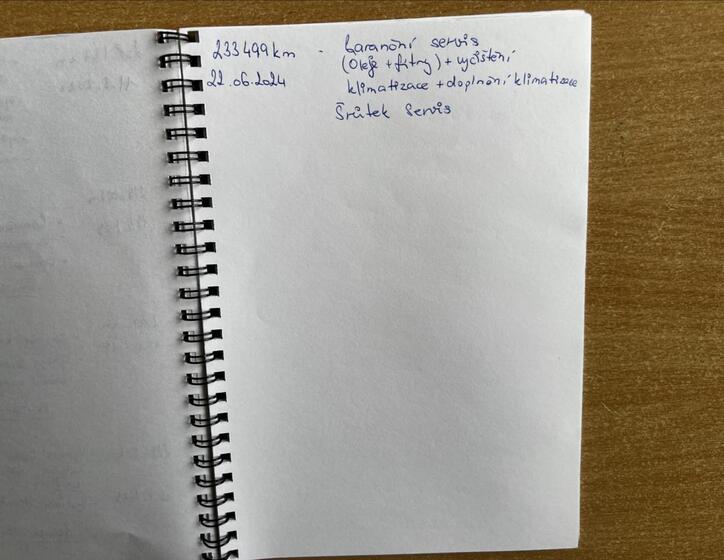 233 499 km - Garanční servis
(Oleje + filtry) + vyčištění
22.06.2024 klimatizace + doplnění klimatizace
Šrůtek servis